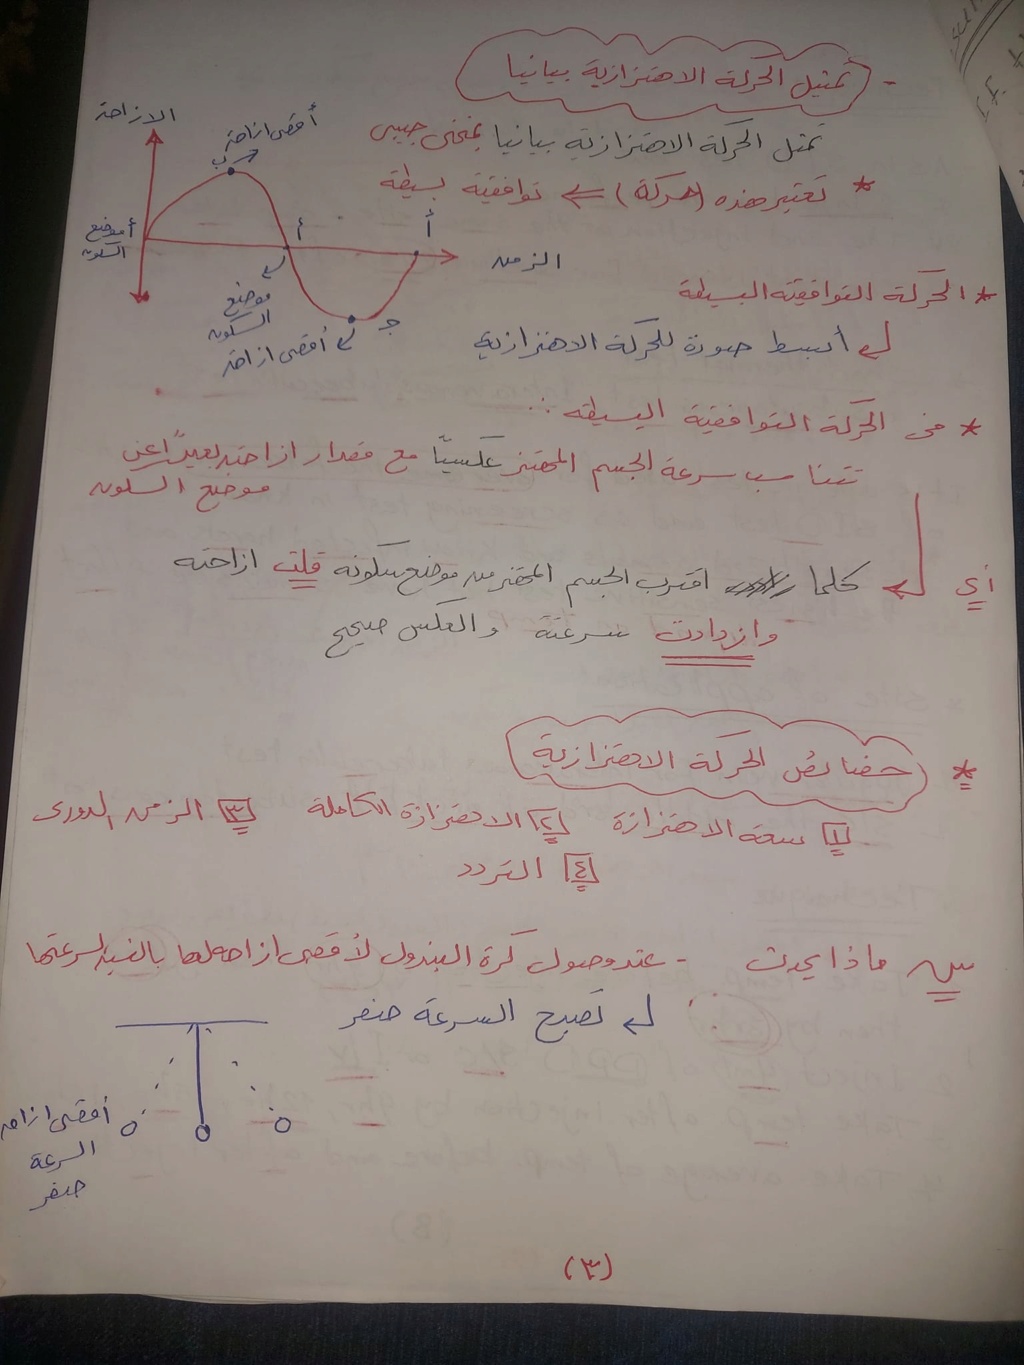 - تمثيل الحركة الاهتزازية بيانيا
تمثل الحركة الاهتزازية بيانيا بمنحنى جيبى
* تعتبر هذه (حركة) ⇐ توافقية بسيطة
الازاحة
أقصى ازاحة
ب
أ موضع السكون
أ
أ
الزمن
موضع السكون
جـ
أقصى ازاحة
* الحركة التوافقية البسيطة
أبسط صورة للحركة الاهتزازية
* فى الحركة التوافقية البسيطة :
تتناسب سرعة الجسم المهتز عكسيًا مع مقدار ازاحته بعيدًا عن
موضع السكون
أى كلما اقترب الجسم المهتز من موضع سكونه قلت ازاحته
وازدادت سرعتة والعكس صحيح
* خصائص الحركة الاهتزازية
١ سعة الاهتزازة ٢ الاهتزازة الكاملة ٣ الزمن الدورى
٤ التردد
س ماذا يحدث - عند وصول كرة البندول لأقصى ازاحه لها بالنسبة لسرعتها
تصبح السرعة صفر
أقصى ازاحه
السرعة
صفر
(٣)